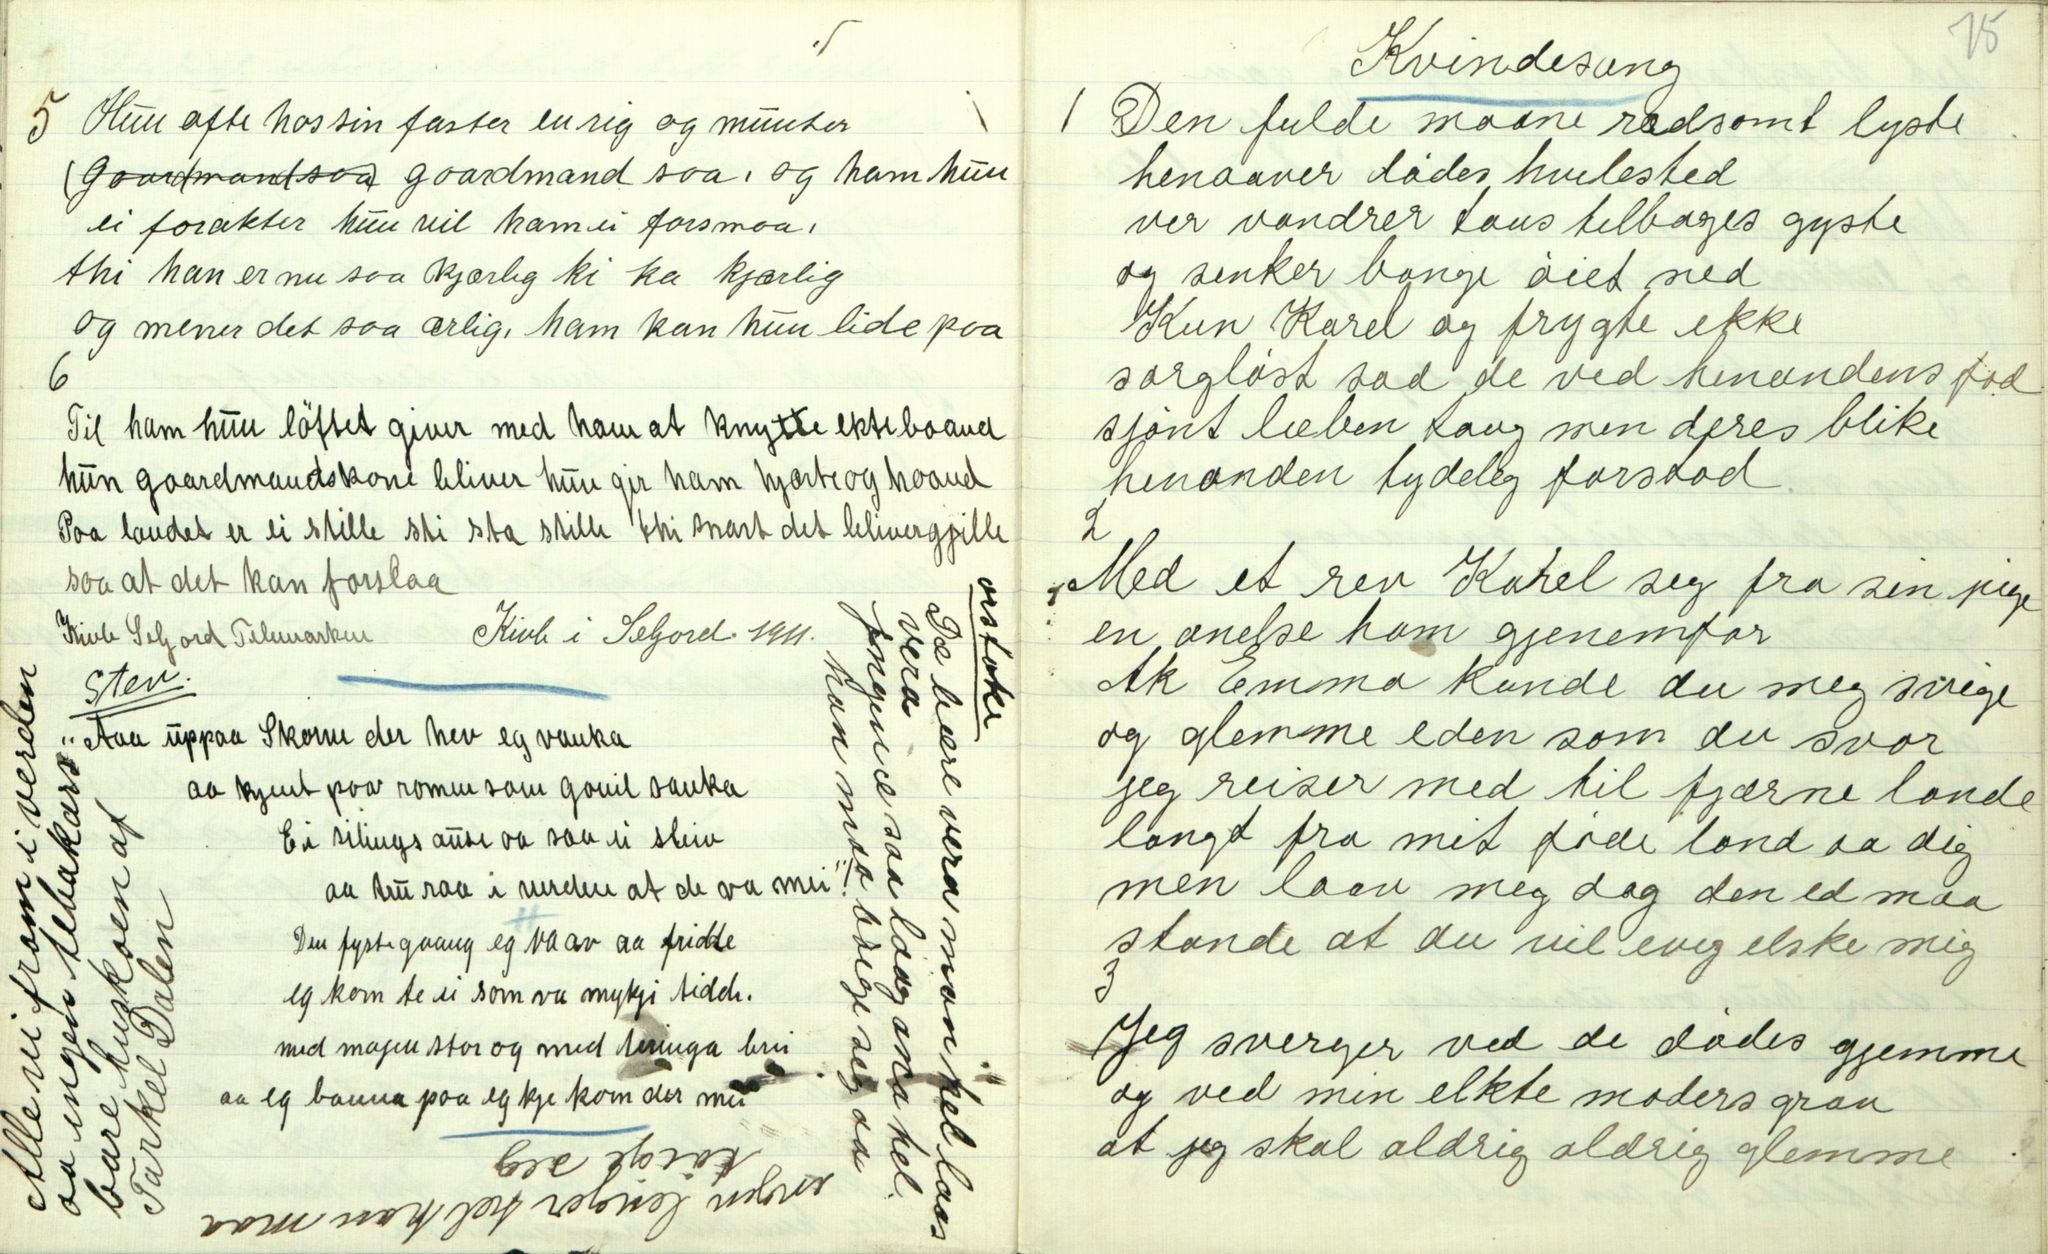 5 Hün ofte hos sin faster en rig og münter
(goardmand saa) goardmand saa, og ham hün
ei forakter hün vil ham ei forsmaa,
thi han er nu saa kjærlig ki ka kjærlig
og mener det saa ærlig, ham kan hün lide paa
6
Til ham hün löftet giver med ham at knytte ekteboand
hün goardmandskone bliver hün gir ham hjærte og hoand
Paa landet er ei stille sti sta stille thi snart det bliver gjille
saa at det kan forslaa
Kivle Seljord Telemarken Kivle i Seljord. 1911.
Stev.
Aaa üppaa Skorve der hev eg vanka
aa kjent paa romen som gouil sanka
Ei silings aüse aa saa ei sleiv
aa tru raa i verden at de va mei"!
Den fyste gaang eg va av aa fridde
eg kom te ei som va mykji tidde.
med majen stor og med teringa brei
aa eg banna paa eg kje kom der mei
Alle vil fram i verden
aa ingen tebakars"
bare huskoen af
Tarkel Dalen
orstøke
De bære vera manni hel laas
vera
fingene saa laag ana hel
han maa böige seg aa
lenger hel han maa
töige seg
75
Kvindesang
1 Den fulde maane rædsomt lyste
henaaver dødes hvilested
ver vandrer taus tilbages gyste
og senker bange øiet ned
Kun Karel og frygte ekke
sorgløst sad de ved henandens fod
sjønt læben taug men deres blike
henanden tydeleg forstod
2
Med et rev Karel seg fra sin pige
en anelse ham gjenemfor
Ak Emma kunde du meg svige
og glemme eden som du svor
jeg reiser med til fjærne lande
langt fra mit føde land aa dig
men laav meg dog den ed maa
stande at du vil eveg elske mig
3
Jeg sverger ved de dødes gjemme
og ved min elkte moders grav
at jeg skal aldrig aldrig glemme